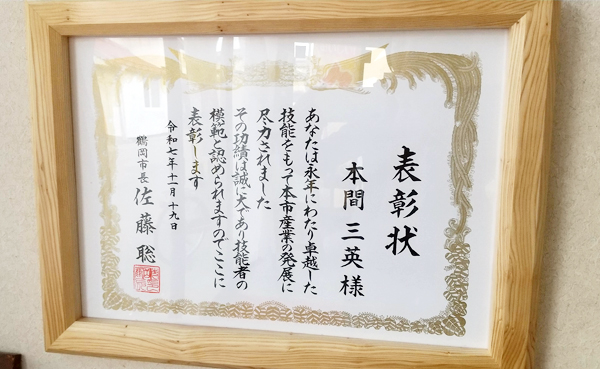 表彰状
本間三英様
あなたは永年にわたり卓越した
技能をもって本市産業の発展に
尽力されました
その功績は誠に大であり技能者の
模範と認められますのでここに
表彰します
令和七年十一月十九日
鶴岡市長 佐藤聡